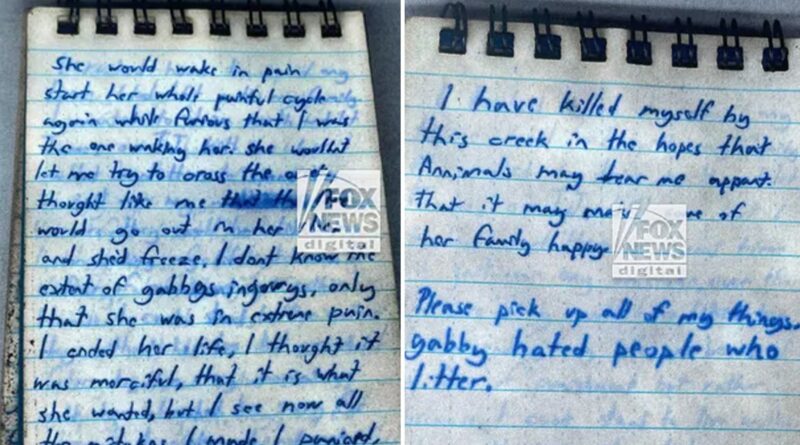 She would wake in pain
start her whole painful cycle
again while furious that I was
the one waking her. she wouldnt
let me try to cross the
thought like me
would go out in her
and she'd freeze. I dont know the
extent of gabbys
only
that she was in extreme pain.
I ended her life, I thought it
was merciful, that it is what
she wanted, but I see now all
the mistakes I made. I panicd.
FOX
NEWS
digital
I have killed myself by
this creek in the hopes that
Annimals may tear me appart.
that it may
of
her family happy
FOX
NEWS
digital
Please pick up all of my things.
gabby hated people who
litter.